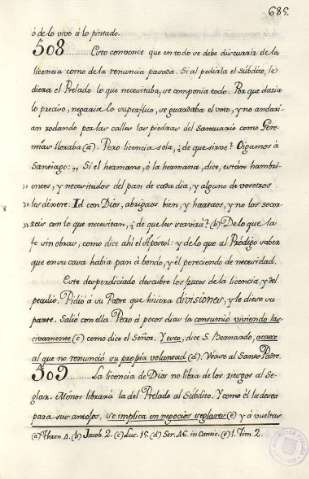 685.
ó de lo vivo á lo pintado.
508 Esto compone que en todo se debe discurrir de la
licencia como de la renuncia pasada. Si al pedirla el súbdito, le
diera el Prelado lo que necesitaba, se componia todo. Por que daria
lo preciso, negaria lo superfluo, se guardaba el voto, y no andarian
rodando por las calles las piedras del santuario como Geremias
lloraba (a). Pero licencia sola, ¿de que sirve? Oigamos á
Santiago: Si el hermano, ó la hermana, dice, estén hambrientos,
y necesitados del pan de cada dia, y alguno de vosotros
les dixere: Id con Dios, abrigaos bien, y hartaos, y no los socorreis
con lo que necesitan, ¿de que les servirá? (b) De lo que la
fe sin obras, como dice ahi el Apostol: y de lo que al Pródigo saber
que en su casa habia pan á hondo, y él pereciendo de necesidad.
Este desperdiciado descubre los pasos de la licencia, y del
peculio. Pidió á su Padre que hiciera divisiones, y le diese su
parte. Salió con ella. Pero á pocos dias la consumió viviendo lascivamente
(c) como dice el Señor. Y esto, dice S. Bernardo, acaece
al que no renunció su propia voluntad (d). Véase al Santo Padre.
509 La licencia de Dios no libra de los riesgos al Seglar.
Menos librará la del Prelado al Súbdito. Y como él la desea
para sus antojos, se implica en negocios seglares (e) y á vueltas
(a) Thren. 4. (b) Jacob. 2. (c) Luc. 15. (d) Ser. 46. in (e) 1. Tim. 2.